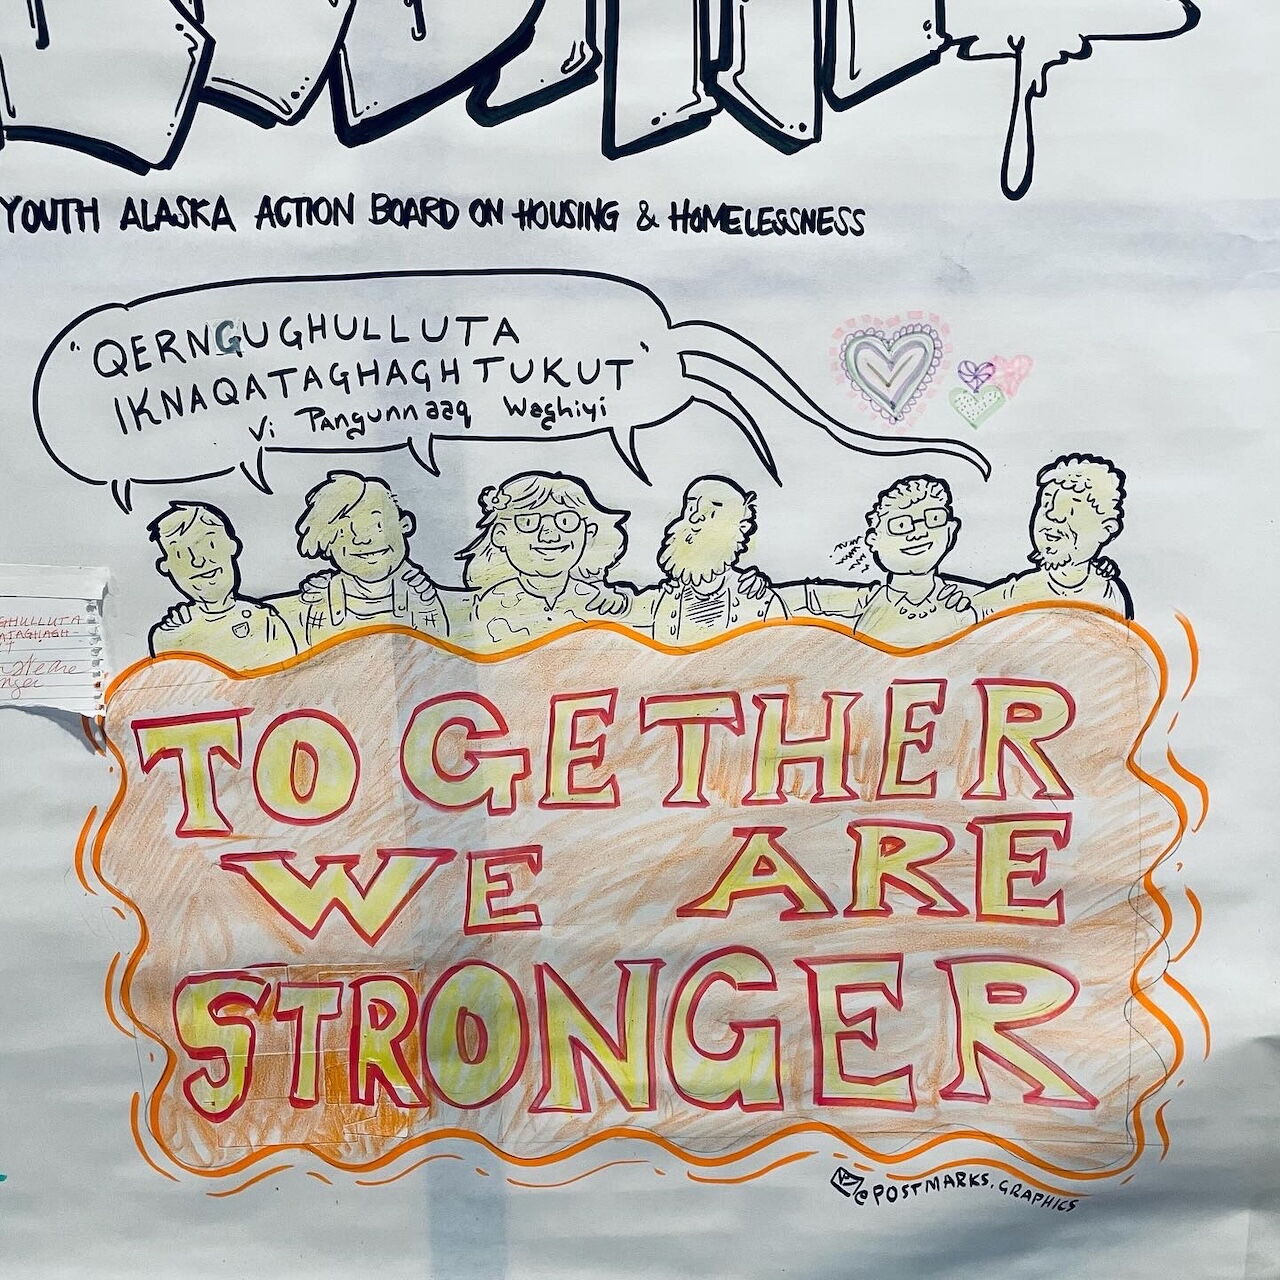 YOUTH ALASKA ACTION BOARD ON HOUSING & HOMELESSNESS
"QERNGUGHULLUTA
IKNAQATAGHAGHTUKUT"
Vi Pangunnaaq Waghiyi
GHULLUTA
TOGETHER
WE ARE
STRONGER
@POSTMARKS.GRAPHICS